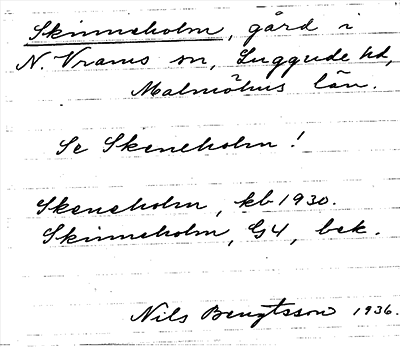 Skinneholm, gård i
N. Vrams sn, Luggude hd,
Malmöhus län.
Se Skeneholm!
Skeneholm, kb 1930.
Skinneholm, G4, bek.
Nils Bengtsson 1936.